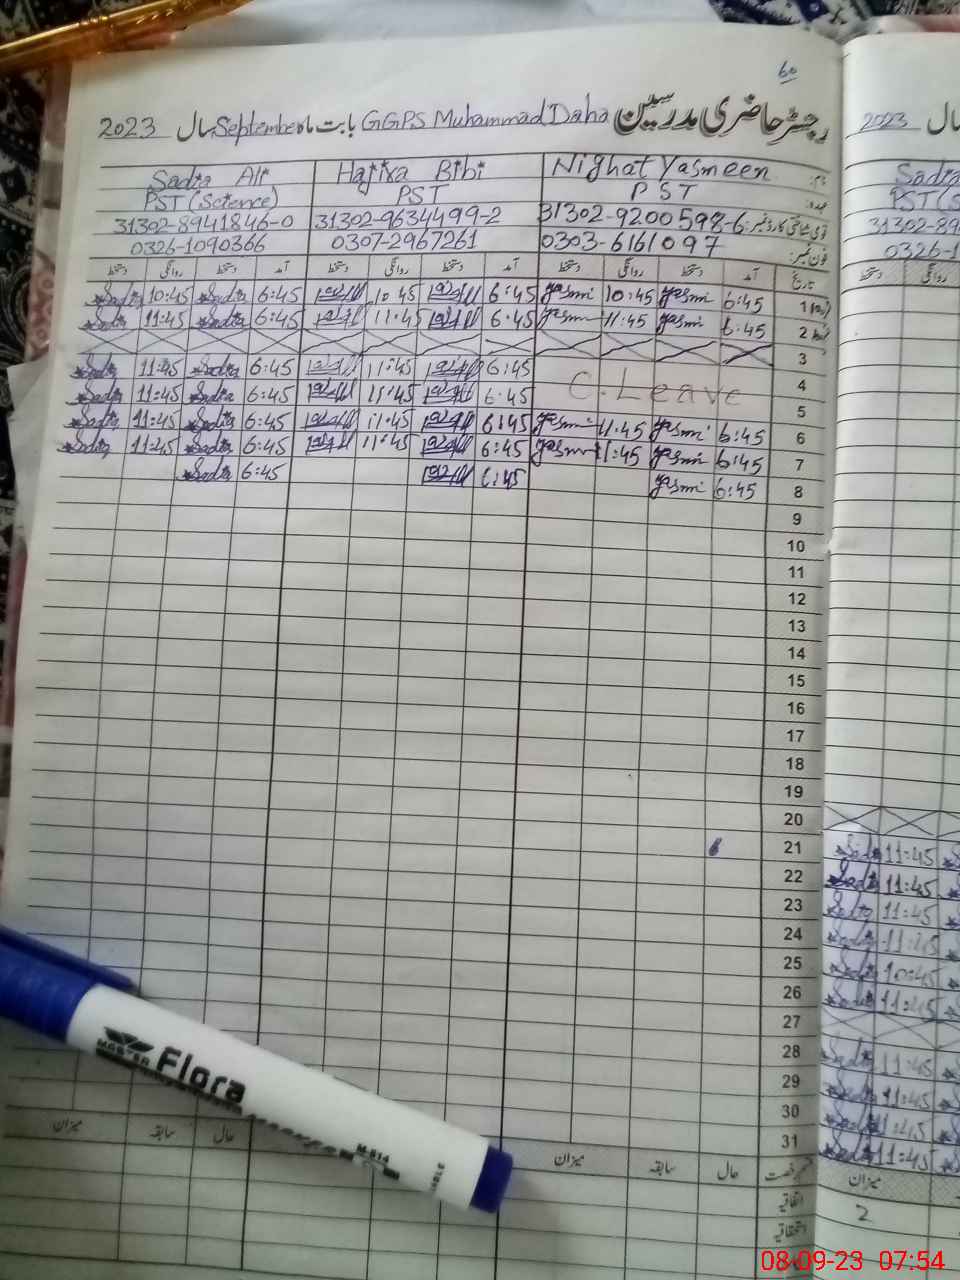 60
رجسٹر حاضری مدرسین GGPS Muhammad Daha بابت ماہ September سال 2023
Sadia Ali Hajra Bibi Nighat Yasmeen نام:
PST (Science) PST PST عہدہ:
31302-8941846-0 31302-9634499-2 31302-9200598-6 قومی شناختی کارڈ نمبر:
0326-1090366 0307-2967261 0303-6161097 فون نمبر:
دستخط روانگی دستخط آمد دستخط روانگی دستخط آمد دستخط روانگی دستخط آمد تاریخ
Sadia 10:45 Sadia 6:45 10:45 6:45 Yasmi 10:45 Yasmi 6:45 1
Sadia 11:45 Sadia 6:45 11:45 6:45 Yasmi 11:45 Yasmi 6:45 2
3
Sadia 11:45 Sadia 6:45 11:45 6:45 4
Sadia 11:45 Sadia 6:45 11:45 6:45 C.Leave 5
Sadia 11:45 Sadia 6:45 11:45 6:45 Yasmi 11:45 Yasmi 6:45 6
Sadia 11:45 Sadia 6:45 11:45 6:45 Yasmi 11:45 Yasmi 6:45 7
Sadia 6:45 6:45 Yasmi 6:45 8
9
10
11
12
13
14
15
16
17
18
19
20
21
22
23
24
25
26
27
28
29
30
31
میزان سابقہ حال میزان سابقہ حال قسم رخصت
اتفاقیہ
استحقاقیہ
2023 سال
Sadia
PST (S
31302-89
0326-1
دستخط روانگی
Sadia 11:45
Sadia 11:45
Sadia 11:45
Sadia 11:45
Sadia 10:45
Sadia 11:45
Sadia 11:45
Sadia 11:45
Sadia 11:45
Sadia 11:45
میزان
2
MASTER Flora
M-814
08-09-23 07:54